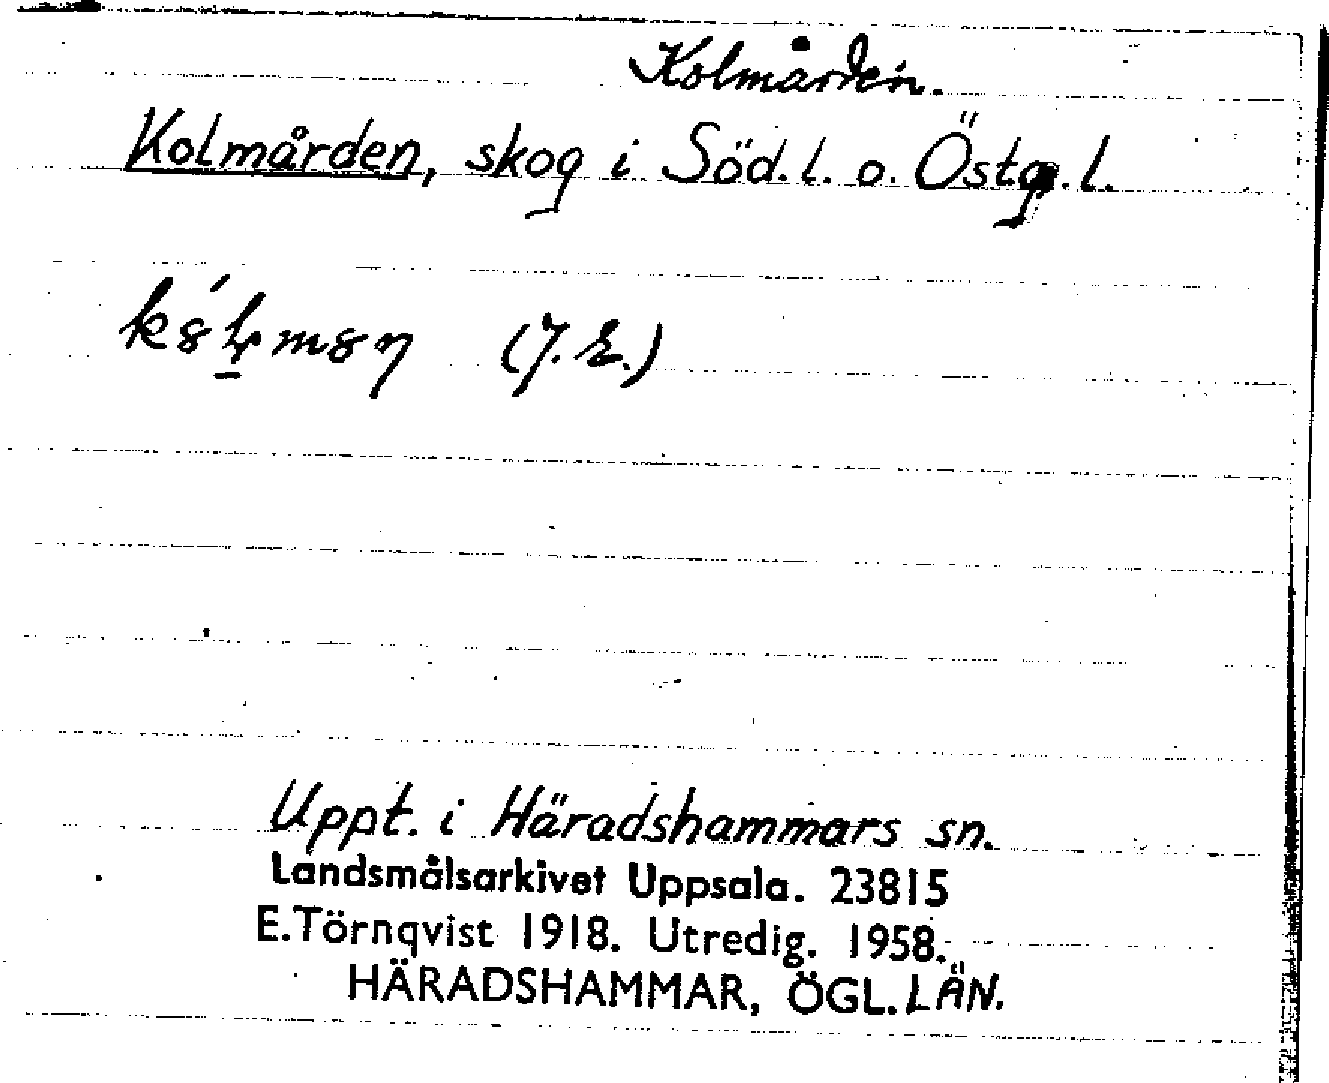 Kolmården.
Kolmården, skog i Söd. l. o. Östg. l.
Uppt. i Häradshammars sn.
Landsmålsarkivet Uppsala. 23815
E.Törnqvist 1918. Utredig. 1958.
HÄRADSHAMMAR, ÖGL. LÄN.